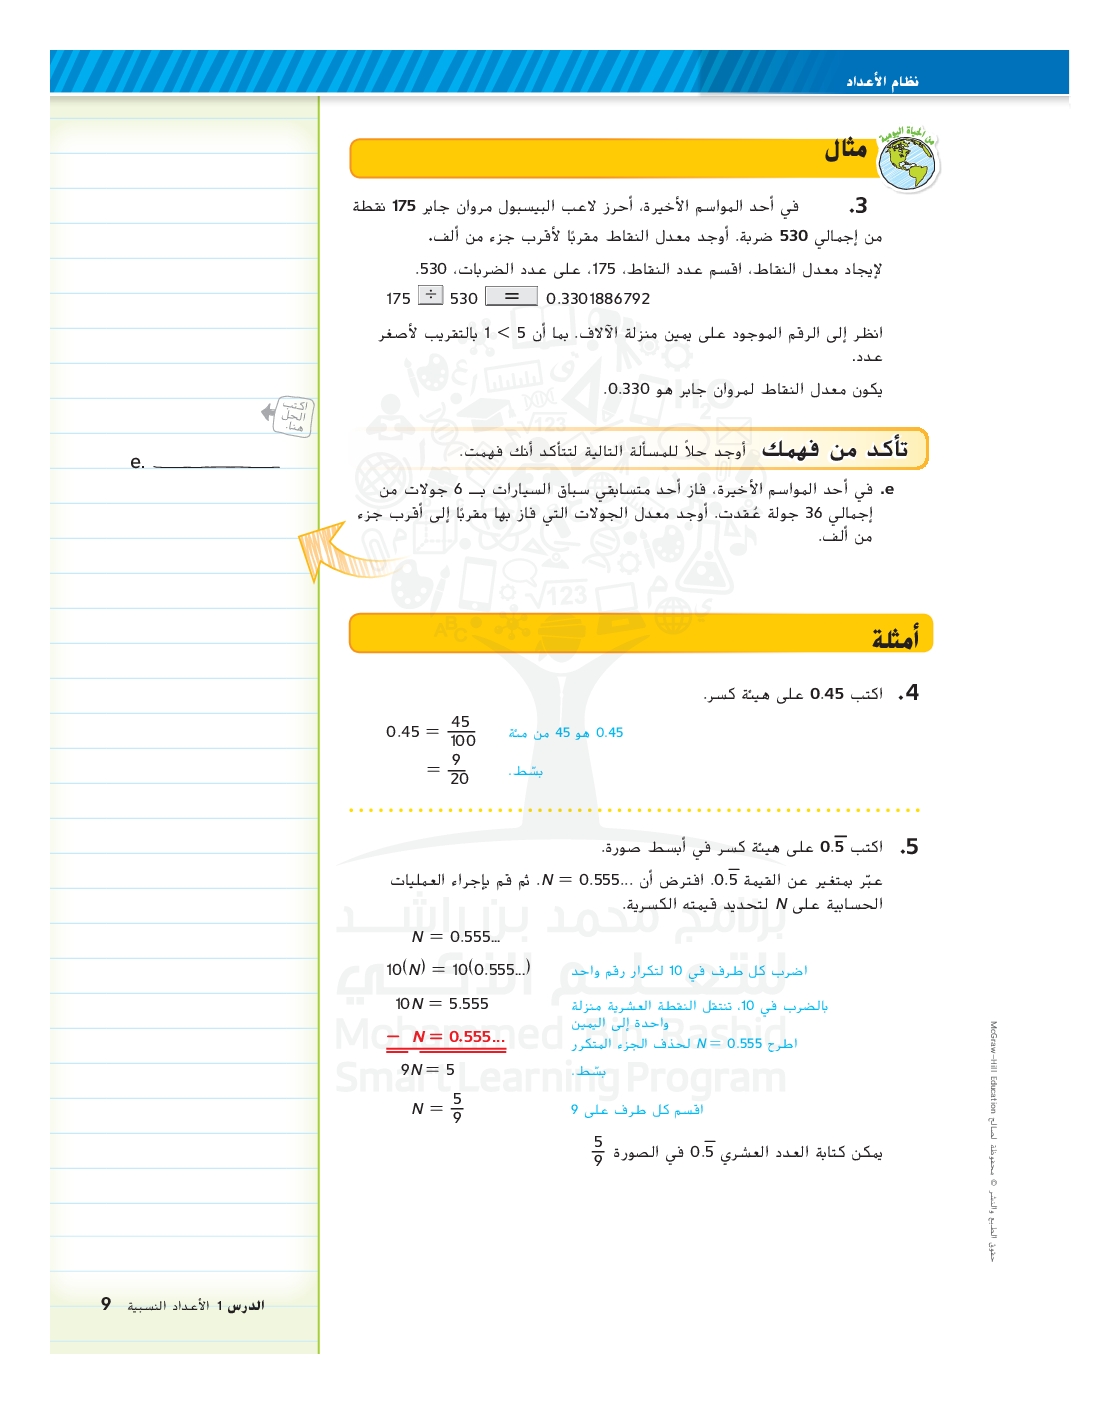 نظام الأعداد
من الحياة اليومية
مثال
3. في أحد المواسم الأخيرة، أحرز لاعب البيسبول مروان جابر 175 نقطة
من إجمالي 530 ضربة. أوجد معدل النقاط مقربًا لأقرب جزء من ألف.
لإيجاد معدل النقاط، اقسم عدد النقاط، 175، على عدد الضربات، 530.
175 ÷ 530 = 0.3301886792
انظر إلى الرقم الموجود على يمين منزلة الآلاف. بما أن 5 > 1 بالتقريب لأصغر
عدد.
يكون معدل النقاط لمروان جابر هو 0.330.
اكتب
الحل
هنا.
تأكد من فهمك أوجد حلاً للمسألة التالية لتتأكد أنك فهمت.
e. ____________
e. في أحد المواسم الأخيرة، فاز أحد متسابقي سباق السيارات بـ 6 جولات من
إجمالي 36 جولة عُقدت. أوجد معدل الجولات التي فاز بها مقربًا إلى أقرب جزء
من ألف.
أمثلة
4. اكتب 0.45 على هيئة كسر.
0.45 = 45/100 0.45 هو 45 من مئة
= 9/20 بسّط.
5. اكتب 0.5̅ على هيئة كسر في أبسط صورة.
عبّر بمتغير عن القيمة 0.5̅. افترض أن N = 0.555...‎. ثم قم بإجراء العمليات
الحسابية على N لتحديد قيمته الكسرية.
N = 0.555...
10(N) = 10(0.555...) اضرب كل طرف في 10 لتكرار رقم واحد
10N = 5.555 بالضرب في 10، تنتقل النقطة العشرية منزلة
واحدة إلى اليمين
− N = 0.555... اطرح N = 0.555 لحذف الجزء المتكرر
9N = 5 بسّط.
N = 5/9 اقسم كل طرف على 9
يمكن كتابة العدد العشري 0.5̅ في الصورة 5/9
برنامج محمد بن راشد
للتعلم الذكي
Mohammed Bin Rashid
Smart Learning Program
حقوق الطبع والنشر © محفوظة لصالح McGraw-Hill Education
الدرس 1 الأعداد النسبية 9